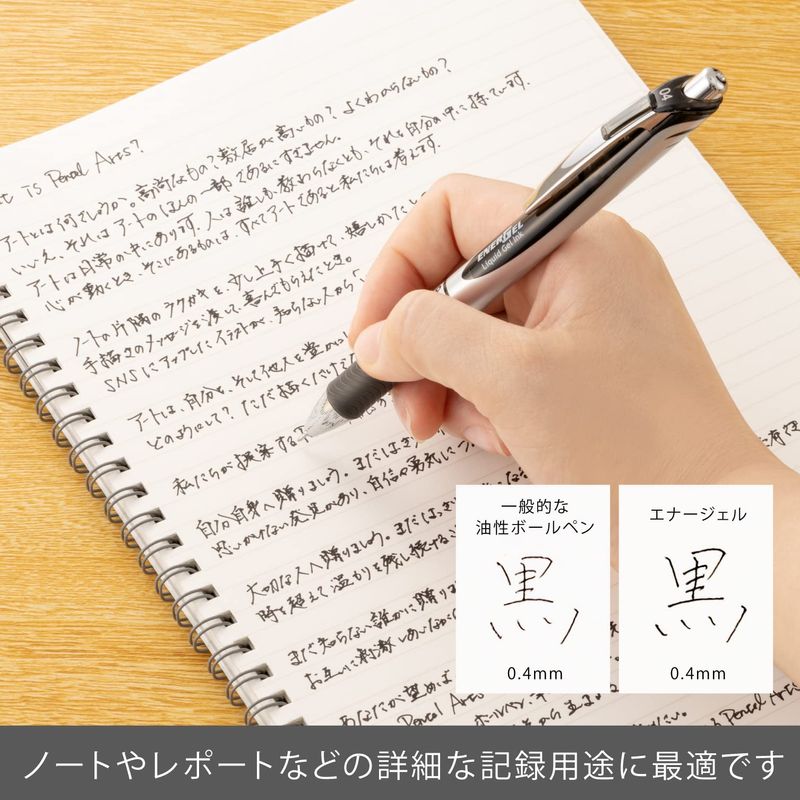 t is Pental Arts?
アートとは何でしょうか。高尚なもの？敷居が高いもの？よくわからないもの？
いいえ、それはアートのほんの一部であるにすぎません。
アートは日常の中にあります。人は誰しも、教わらなくとも、それを自分の中に持っています。
心が動くとき、そこにあるものは、すべてアートであると私たちは考えます。
ノートの片隅のラクガキを、少し上手く描けて、嬉しかったと
手描きのメッセージを渡して、喜んでもらえたとき。
SNSにアップしたイラストが、知らない人から「
アートは、自分を、そして他人を豊かに
どのようにして？ただ描くだけで
私たちが提案する
自分自身へ贈りましょう。まだはっき
思いがけない発見があり、自信や勇気に
大切な人へ贈りましょう。まだはっき
時を超えて温かりを残し続ける
まだ知らない誰かに贈り
お互いに刺激しあいながら
あなたが望めば
Pental Arts
ENERGEL
Liquid Gel Ink
04
一般的な
油性ボールペン
黒
0.4mm
エナージェル
黒
0.4mm
ノートやレポートなどの詳細な記録用途に最適です